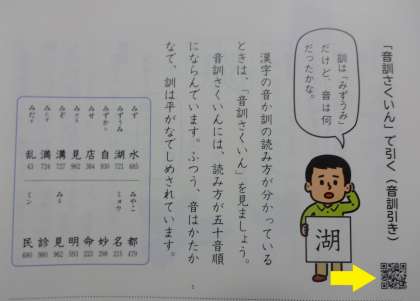 「音訓さくいん」で引く（音訓引き）
訓は「みずうみ」
だけど、音は何
だったかな。
湖
漢字の音か訓の読み方が分かっている
ときは、「音訓さくいん」を見ましょう。
音訓さくいんには、読み方が五十音順
にならんでいます。ふつう、音はかたか
なで、訓は平がなでしめされています。
みず 水 685
みずうみ 湖 721
みずか 自 930
みせ 店 364
み 見 962
みぞ 溝 724
み 満
みだ 乱 63
みやこ 都 479
ミョウ 名 215
妙 298
命 223
明 593
み 見 962
診 980
ミン 民 690